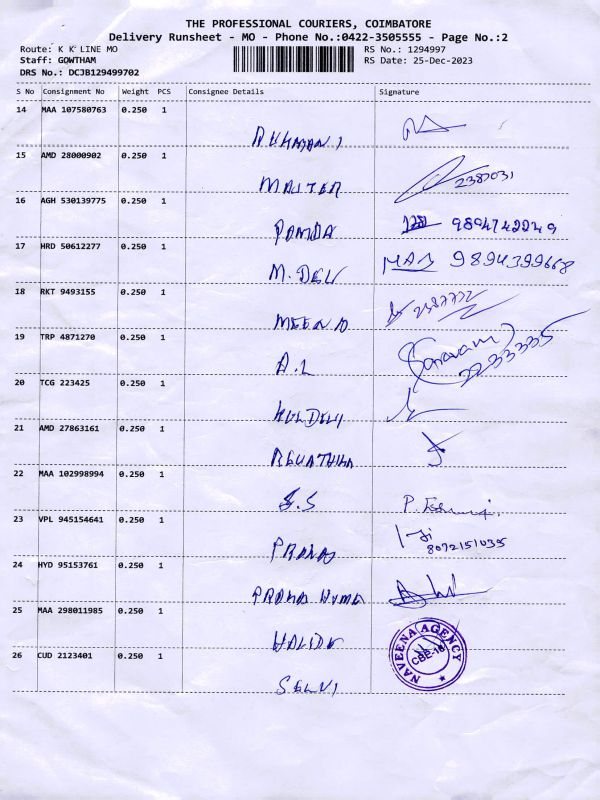 THE PROFESSIONAL COURIERS, COIMBATORE
Delivery Runsheet - MO - Phone No.:0422-3505555 - Page No.:2
Route: K K LINE MO RS No.: 1294997
Staff: GOWTHAM RS Date: 25-Dec-2023
DRS No.: DCJB129499702
S No Consignment No Weight PCS Consignee Details Signature
14 MAA 107580763 0.250 1
RUKMANI
15 AMD 28000902 0.250 1
2387031
16 AGH 530139775 0.250 1
PANDA 9894742249
17 HRD 50612277 0.250 1
M. DEV 9894399668
18 RKT 9493155 0.250 1
MEENA
19 TRP 4871270 0.250 1
A.L Saravanan 2233335
20 TCG 223425 0.250 1
KULDEVI
21 AMD 27863161 0.250 1
REVATHIKA
22 MAA 102998994 0.250 1
S.S P.
23 VPL 945154641 0.250 1
PRANAV 8072151035
24 HYD 95153761 0.250 1
25 MAA 298011985 0.250 1
26 CUD 2123401 0.250 1
NAVEENA AGENCY
CBE-18
SELVI